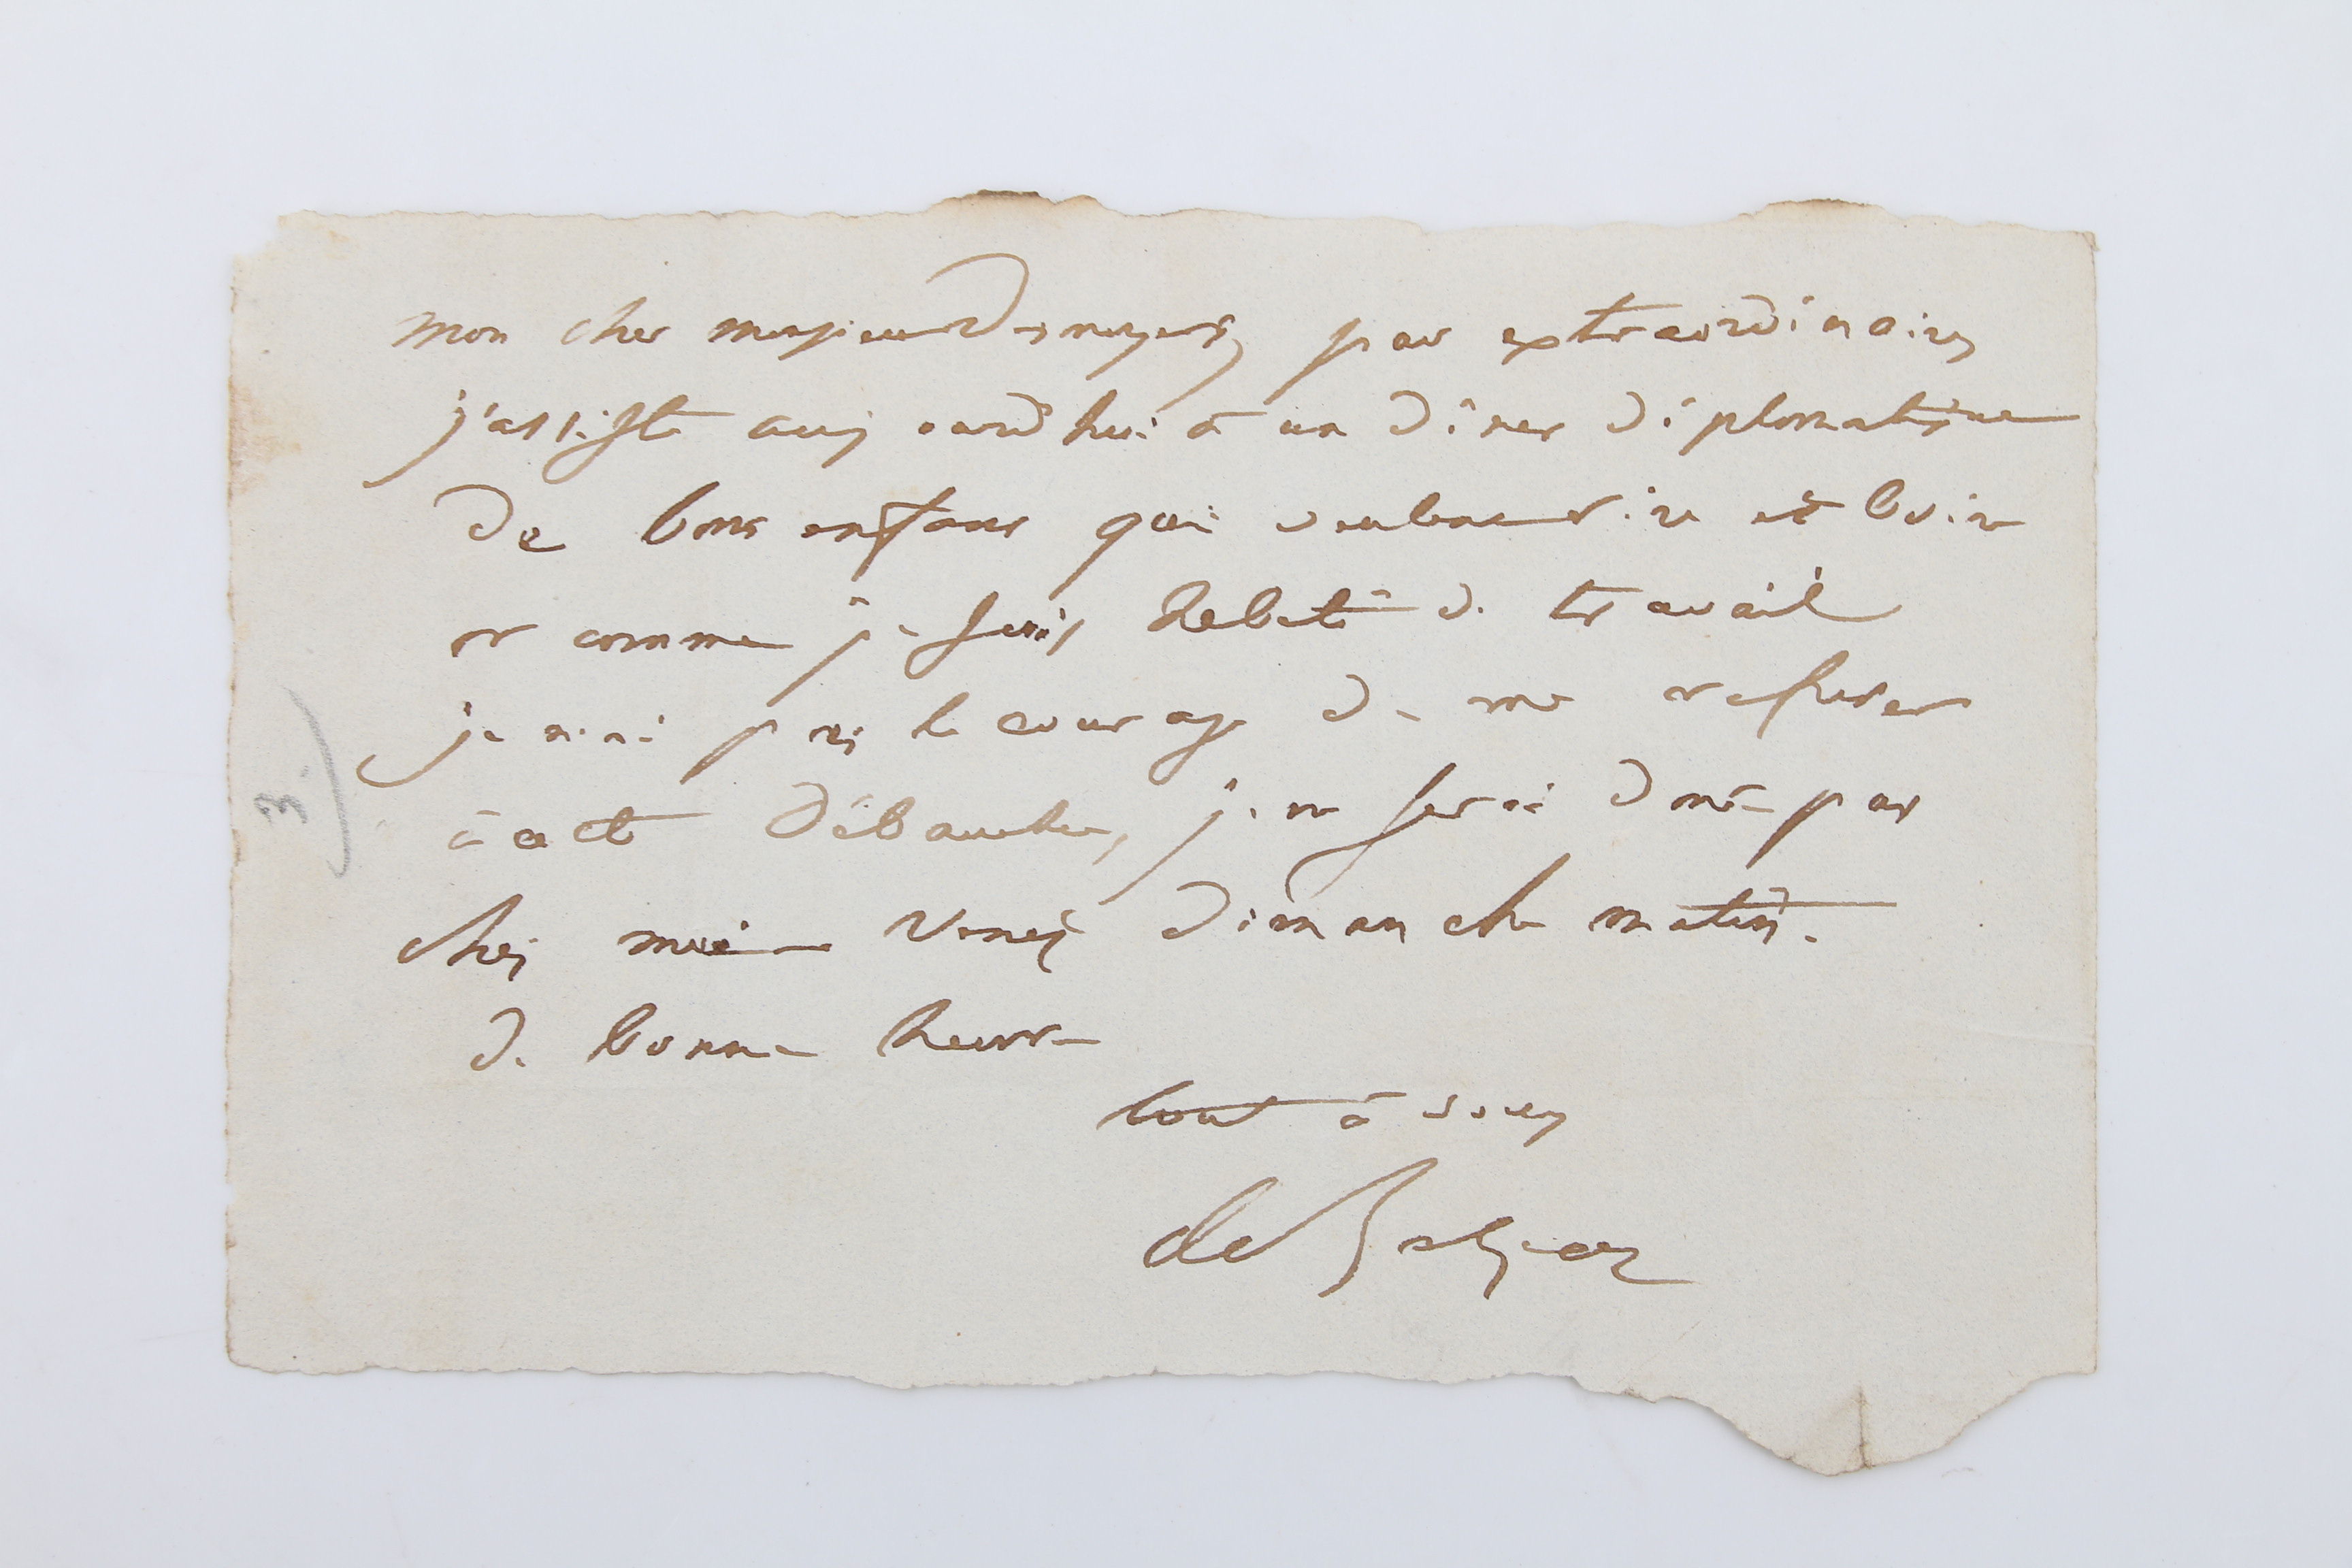 mon cher monsieur Desnoyers, par extraordinaire
j'assiste aujourd'hui à un dîner diplomatique
de bons enfans qui veulent rire et boire
or comme je suis hebété de travail
je n'ai pas le courage de me refuser
à cette débauche, je ne serai donc pas
chez moi — Venez dimanche matin.
de bonne heure
tout à vous
de Balzac
3)